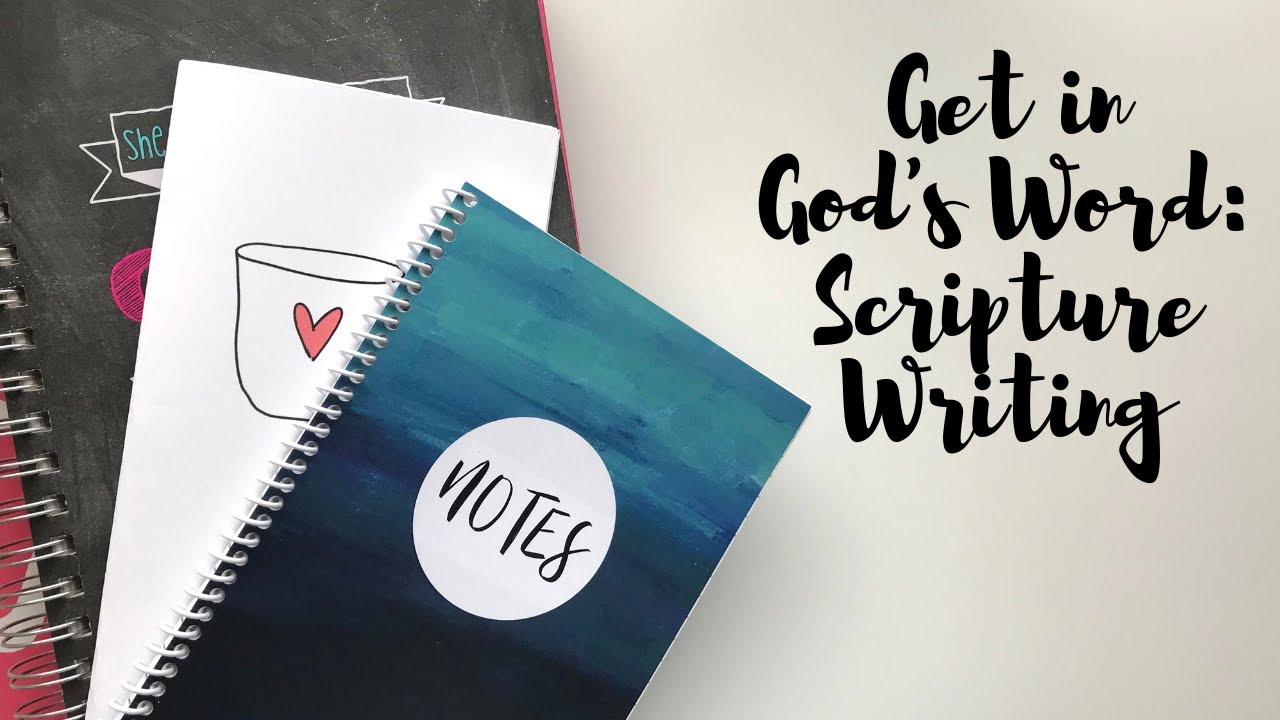 she
NOTES
Get in
God's Word:
Scripture
Writing